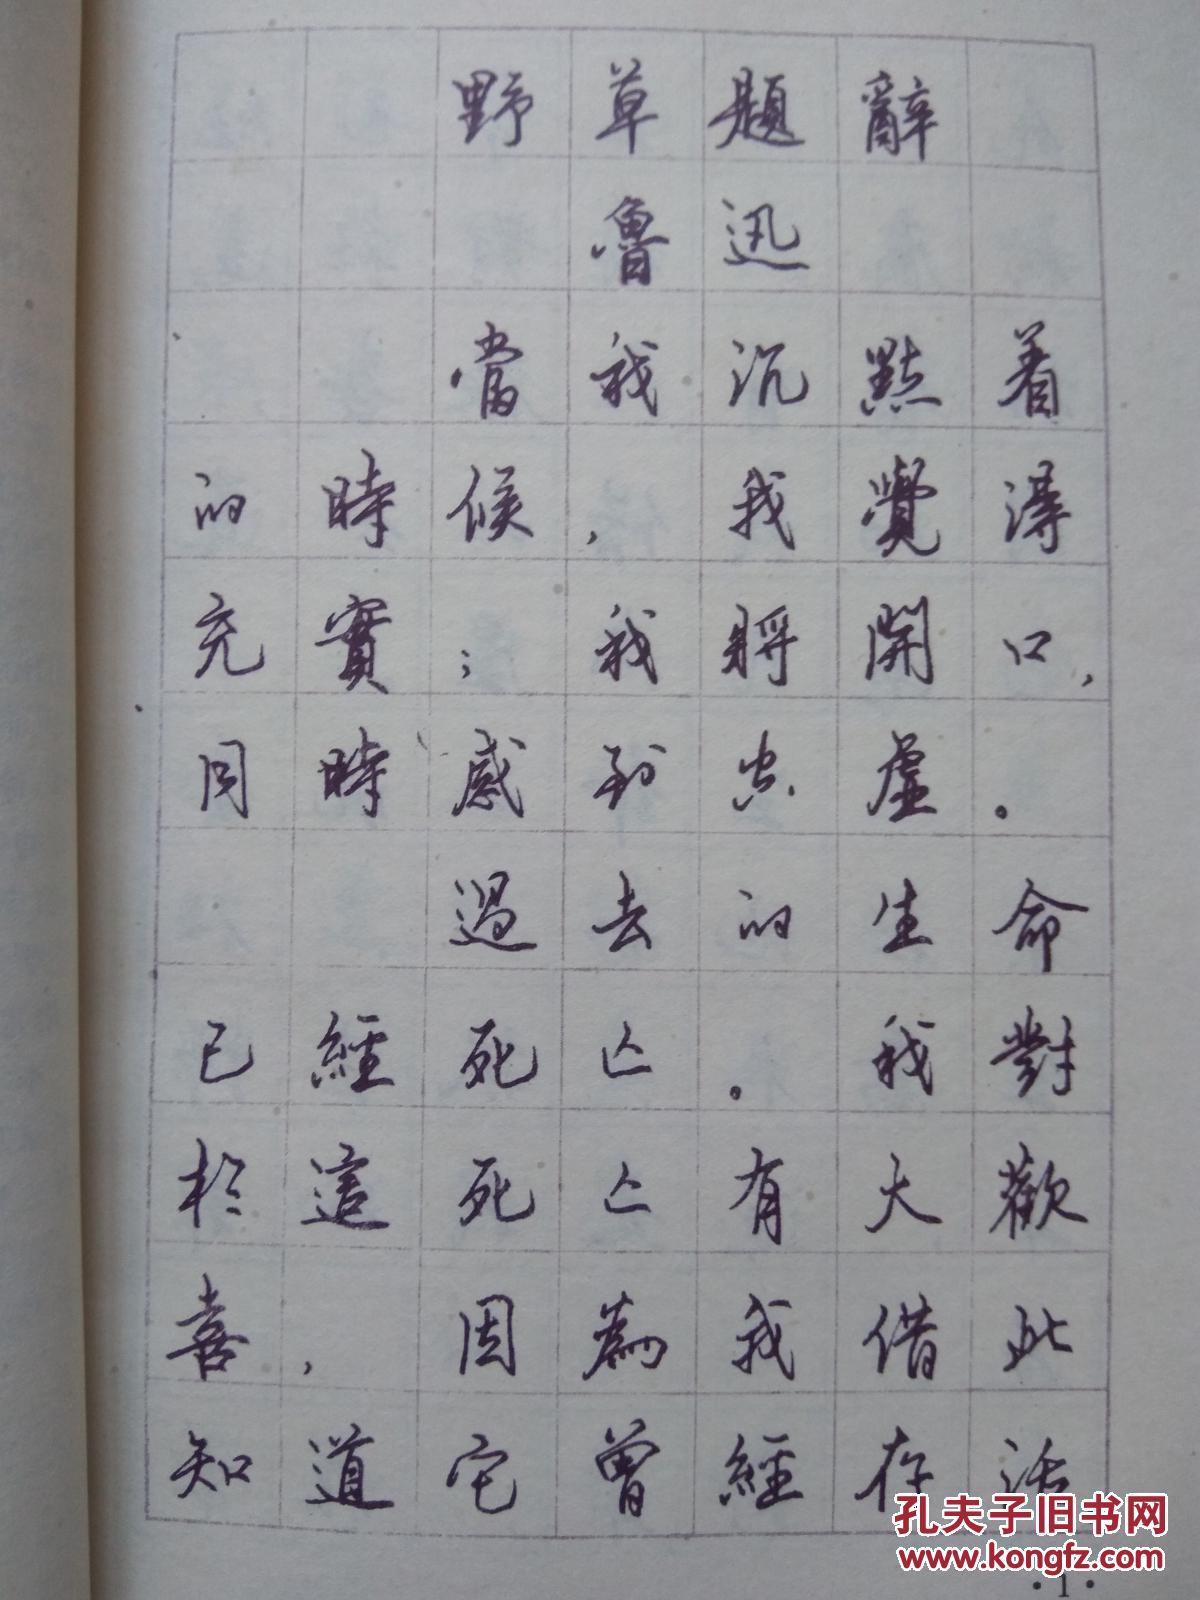 野草題辭
魯迅
當我沉默着
的時候，我覺得
充實；我將開口，
同時感到空虛。
過去的生命
已經死亡。我對
於這死亡有大歡
喜，因為我借此
知道它曾經存活
孔夫子旧书网
www.kongfz.com
·1·